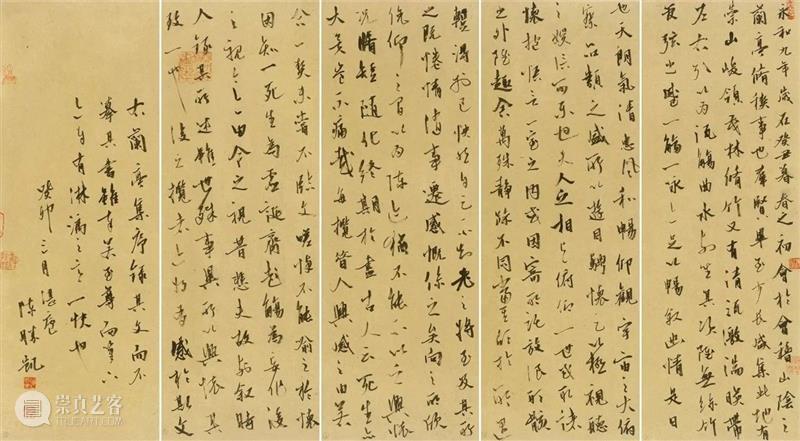 永和九年歲在癸丑暮春之初會於會稽山陰之
蘭亭脩稧事也羣賢畢至少長咸集此地有
崇山峻領茂林脩竹又有清流激湍暎帶
左右引以為流觴曲水列坐其次雖無絲竹
管弦之盛一觴一詠亦足以暢叙幽情是日
也天朗氣清惠風和暢仰觀宇宙之大俯
察品類之盛所以遊目騁懷足以極視聽
之娛信可樂也夫人之相與俯仰一世或取諸
懷抱悟言一室之內或因寄所託放浪形骸
之外雖趣舍萬殊靜躁不同當其欣於所遇
暫得於己快然自足不知老之將至及其所
之既惓情隨事遷感慨係之矣向之所欣
俛仰之間以為陳迹猶不能不以之興懷
況脩短隨化終期於盡古人云死生亦
大矣豈不痛哉每攬昔人興感之由若
合一契未嘗不臨文嗟悼不能喻之於懷
固知一死生為虛誕齊彭殤為妄作後
之視今亦由今之視昔悲夫故列叙時
人錄其所述雖世殊事異所以興懷其
致一也後之攬者亦將有感於斯文
右蘭亭集序錄其文而不
摹其書雖有至尊而
自有淋漓之意一快也
癸卯三月湛庵
陳勝凱
崇真艺客